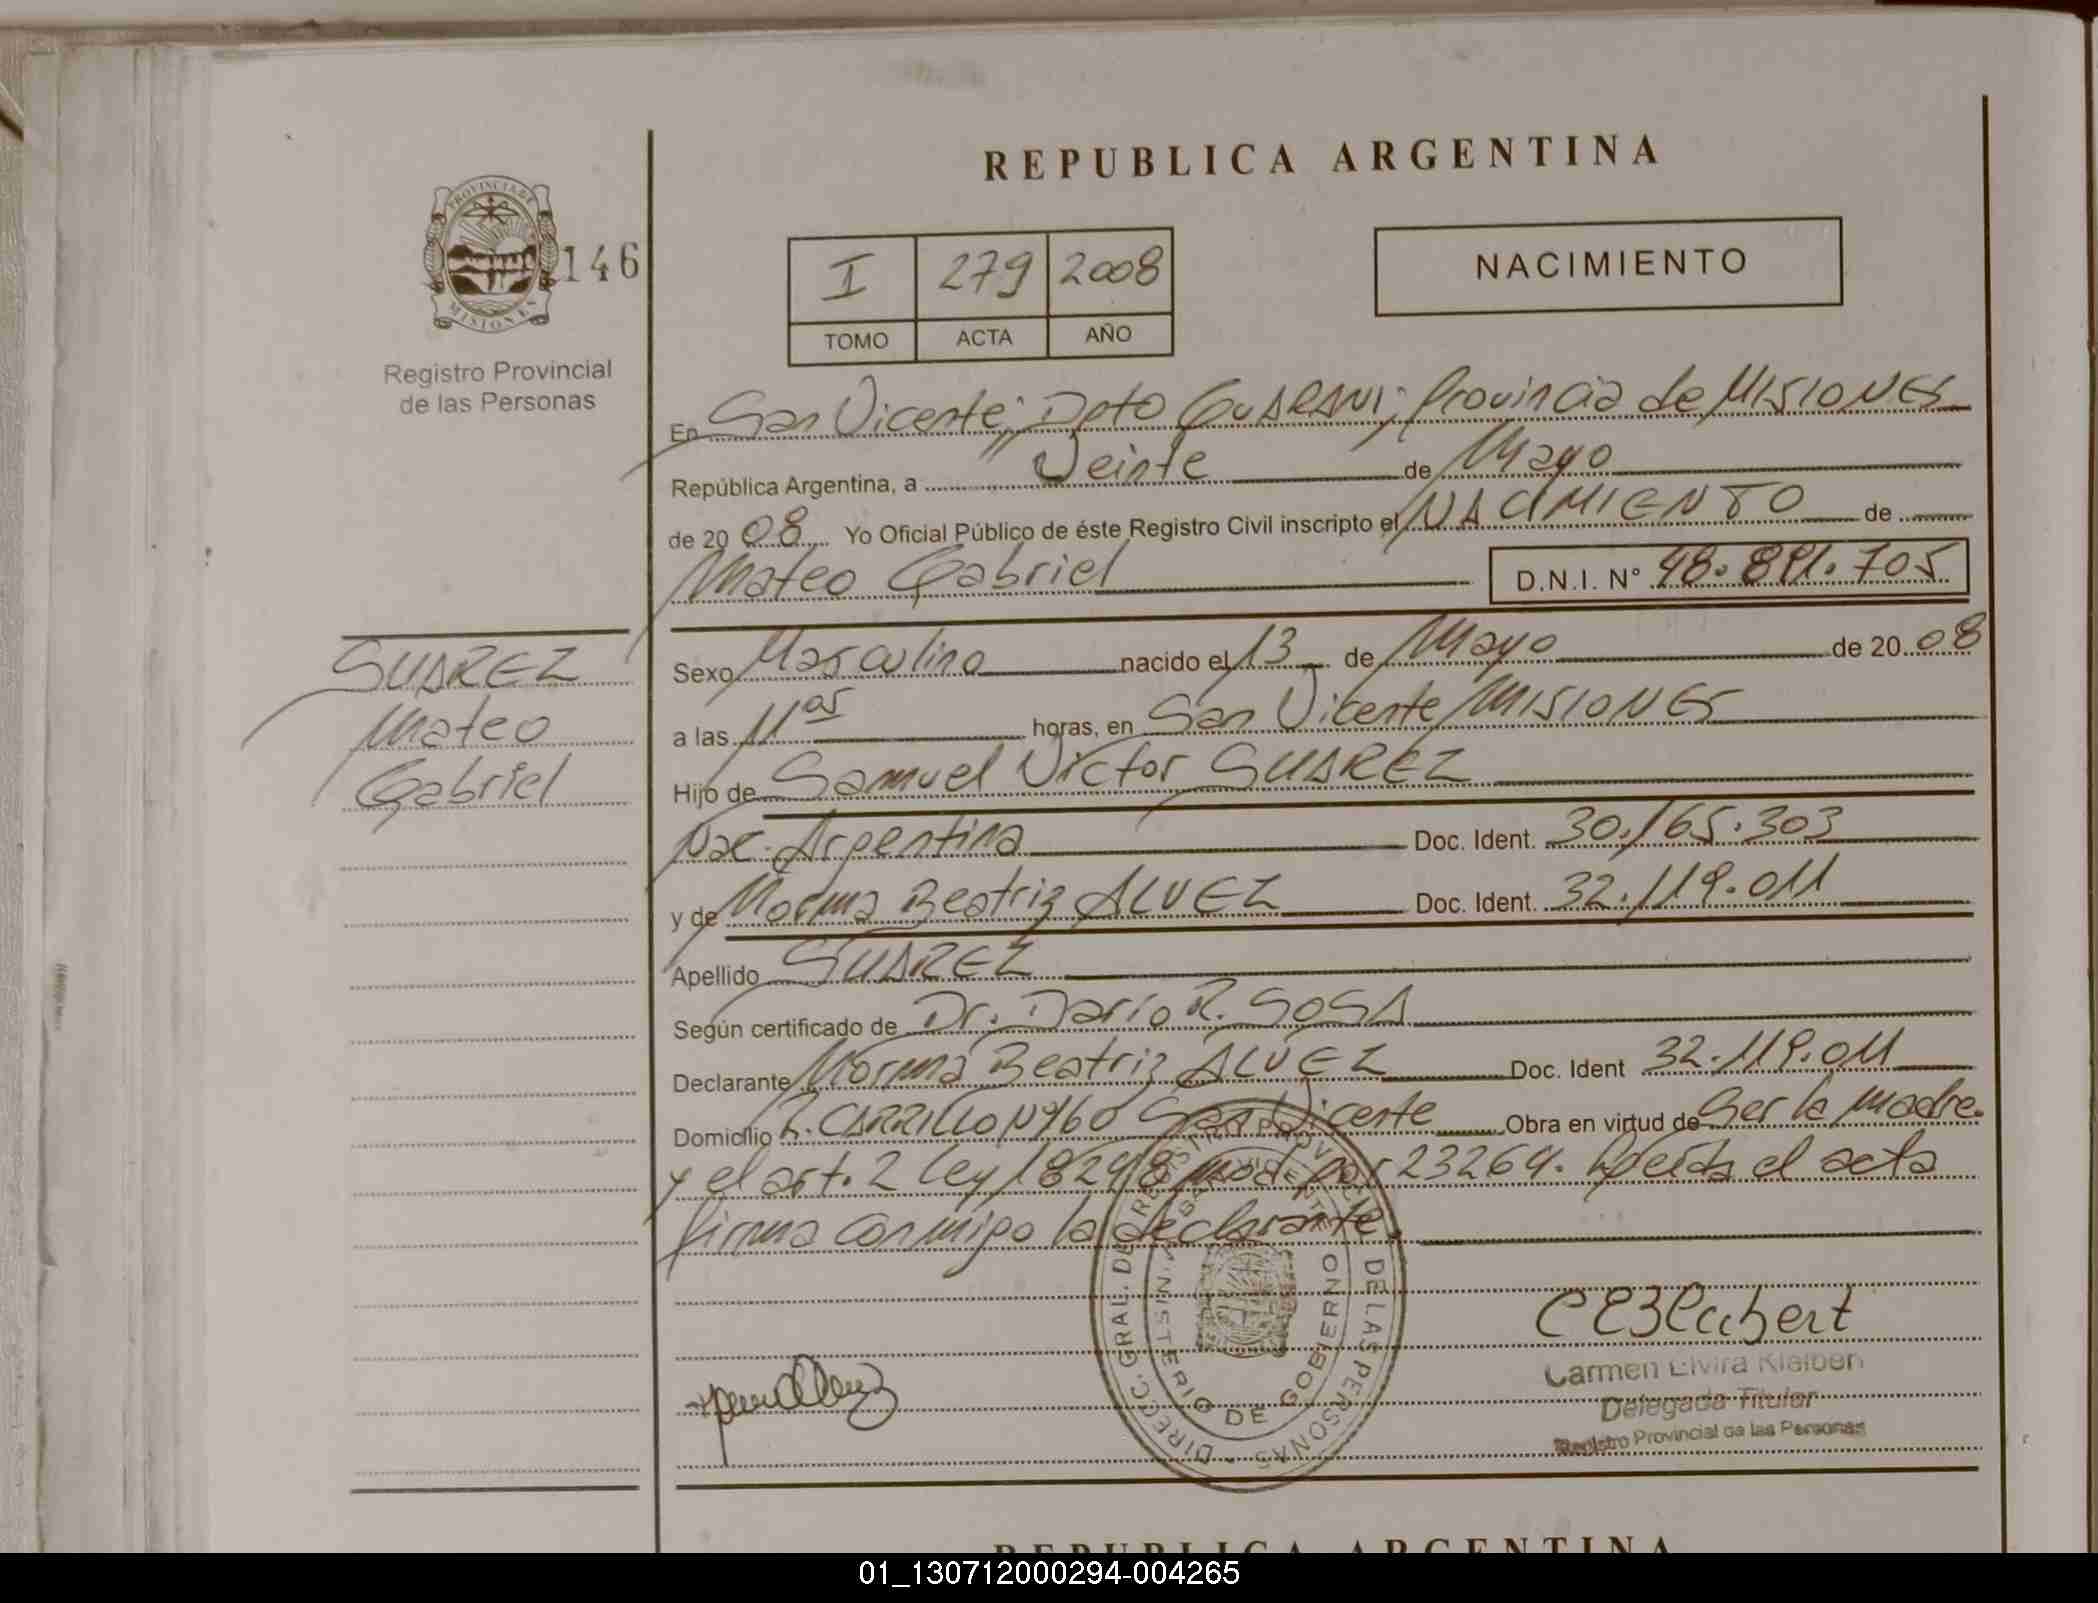 REPUBLICA ARGENTINA
PROVINCIA DE
MISIONES
146
Registro Provincial
de las Personas
I 279 2008
TOMO ACTA AÑO
NACIMIENTO
En San Vicente, Dpto GUARANI; Provincia de MISIONES
República Argentina, a Veinte de Mayo
de 2008 Yo Oficial Público de éste Registro Civil inscripto el NACIMIENTO de
Mateo Gabriel D.N.I. N° 48.891.705
SUAREZ
Mateo
Gabriel
Sexo Masculino nacido el 13 de Mayo de 2008
a las 11 05 horas, en San Vicente MISIONES
Hijo de Samuel Victor SUAREZ
Nac. Argentina Doc. Ident. 30.165.303
y de Norma Beatriz ALVEZ Doc. Ident. 32.119.011
Apellido SUAREZ
Según certificado de Dr. Dario R. SOSA
Declarante Norma Beatriz ALVEZ Doc. Ident 32.119.011
Domicilio R. CARRILLO Nº 160 San Vicente Obra en virtud de Ser la madre.
y el art. 2 Ley 18248 mod por 23264. Leída el acta
firma conmigo la declarante.
DIRECC. GRAL. DE REGISTRO PROVINCIAL DE LAS PERSONAS
SAN VICENTE
MINISTERIO DE GOBIERNO
Carmen Elvira
Delegada Titular
Registro Provincial de las Personas
REPUBLICA ARGENTINA
01_130712000294-004265